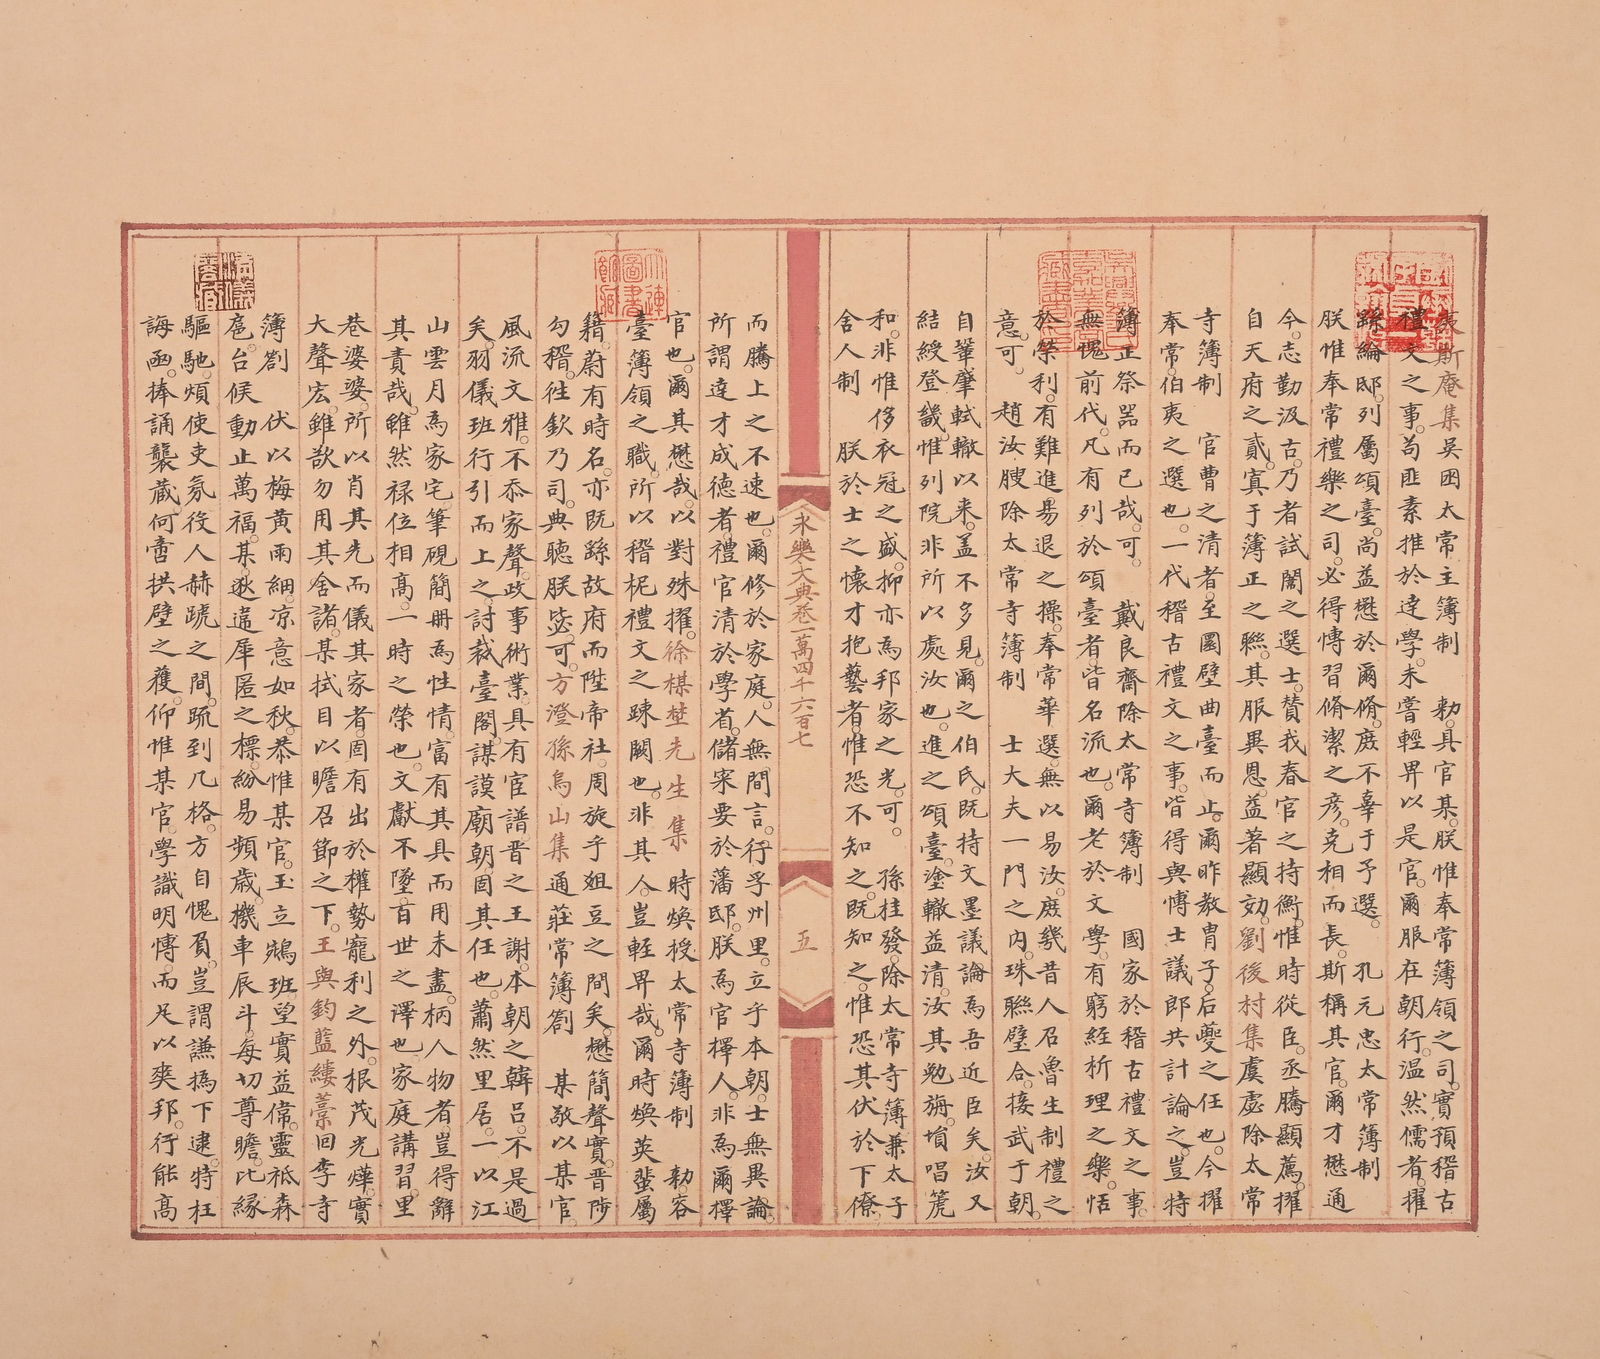 斯庵集吴困太常主簿制　勑具官某朕惟奉常簿領之司實預稽古
禮文之事苟匪素推於達學未嘗輕畀以是官爾服在朝行温然儒者擢
繇綸邸列屬頌臺尚益懋於爾脩庶不辜于予選　孔元忠太常簿制
朕惟奉常禮樂之司必得愽習脩潔之彦克相而長斯稱其官爾才懋通
今志勤汲古乃者試闈之選士賛我春官之持衡惟時從臣丞騰顯薦擢
自天府之貳寘于簿正之聮其服異恩益著顯効劉後村集虞處除太常
寺簿制　官曹之清者至圜壁曲臺而止爾昨教胄子后夔之任也今擢
奉常伯夷之選也一代稽古禮文之事皆得與愽士議郎共計論之豈特
簿正祭器而已哉可　戴良齋除太常寺簿制　國家於稽古禮文之事
無愧前代凡有列於頌臺者皆名流也爾老於文學有窮經析理之樂恬
於榮利有難進昜退之操奉常華選無以易汝庶幾昔人召魯生制禮之
意可　趙汝腝除太常寺簿制　士大夫一門之内珠聮璧合接武于朝
自鞏肇軾轍以来盖不多見爾之伯氏既持文墨議論為吾近臣矣汝又
結綬登畿惟列院非所以處汝也進之頌臺塗轍益清汝其勉旃塤唱箎
和非惟侈衣冠之盛抑亦為邦家之光可　孫桂發除太常寺簿兼太子
舍人制　朕於士之懐才抱藝者惟恐不知之既知之惟恐其伏於下僚
永樂大典卷一萬四千六百七
五
而騰上之不速也爾修於家庭人無間言行孚州里立乎本朝士無異論
所謂達才成徳者禮官清於學省儲寀要於藩邸朕為官擇人非為爾擇
官也爾其懋哉以對殊擢徐楳埜先生集　時煥授太常寺簿制　勑容
臺簿領之職所以稽柅禮文之踈闕也非其人豈輕畀哉爾時煥英蜚屬
籍蔚有時名亦既繇故府而陞帝社周旋乎爼豆之間矣懋簡聲實晋陟
勾稽徃欽乃司典聴朕毖可方澄孫烏山集通莊常簿劄　某敬以某官
風流文雅不忝家聲政事術業具有宦譜晋之王謝本朝之韓吕不是過
矣羽儀班行引而上之討裁臺閣謀謨廟朝固其任也蕭然里居一以江
山雲月為家宅筆硯簡册為性情富有其具而用未盡柄人物者豈得辭
其責哉雖然禄位相髙一時之榮也文獻不墜百世之澤也家庭講習里
巷婆娑所以肖其先而儀其家者固有出於權勢寵利之外根茂光燁實
大聲宏雖欲勿用其舍諸某拭目以瞻召節之下王與鈞藍縷藁回李寺
簿劄　伏以梅黄雨細凉意如秋恭惟某官玉立鵷班望實益偉靈祗森
扈台候動止萬福某遬遠犀匿之標紛易頻歲機車辰斗每切尊瞻比縁
驅馳煩使吏氛役人赫蹏之間䟽到几格方自愧負豈謂謙撝下逮特枉
誨凾捧誦襲蔵何啻拱璧之獲仰惟某官學識明愽而足以爽邦行能髙